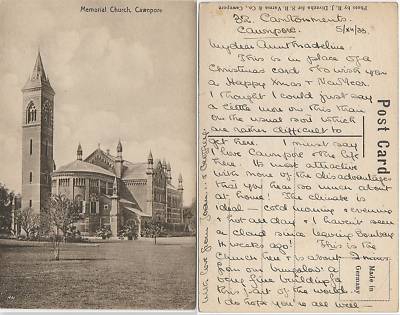 Memorial Church, Cawnpore
Photo by R. J. Divecha for S. B. Varma & Co., Cawnpore
Post Card
Made in
Germany
32. Cantonments.
Cawnpore.
My dear Aunt Madeline,
This is in place of a
Christmas card & to wish you
a Happy Xmas & New Year.
I thought I could just say
a little more on this than
on the usual sort which
are rather difficult to
get here. I must say
I love Cawnpore & the life
here. It is most attractive
with none of the disadvantages
that you hear so much about
at home! The climate is
ideal - cold morning & evening
& hot all day & I haven't seen
a cloud since leaving Bombay
weeks ago! This is the
Church here & is about 2 mins.
from our bungalow & a
being fine building for
this part of the world.
I do hope you're all well -
with love from